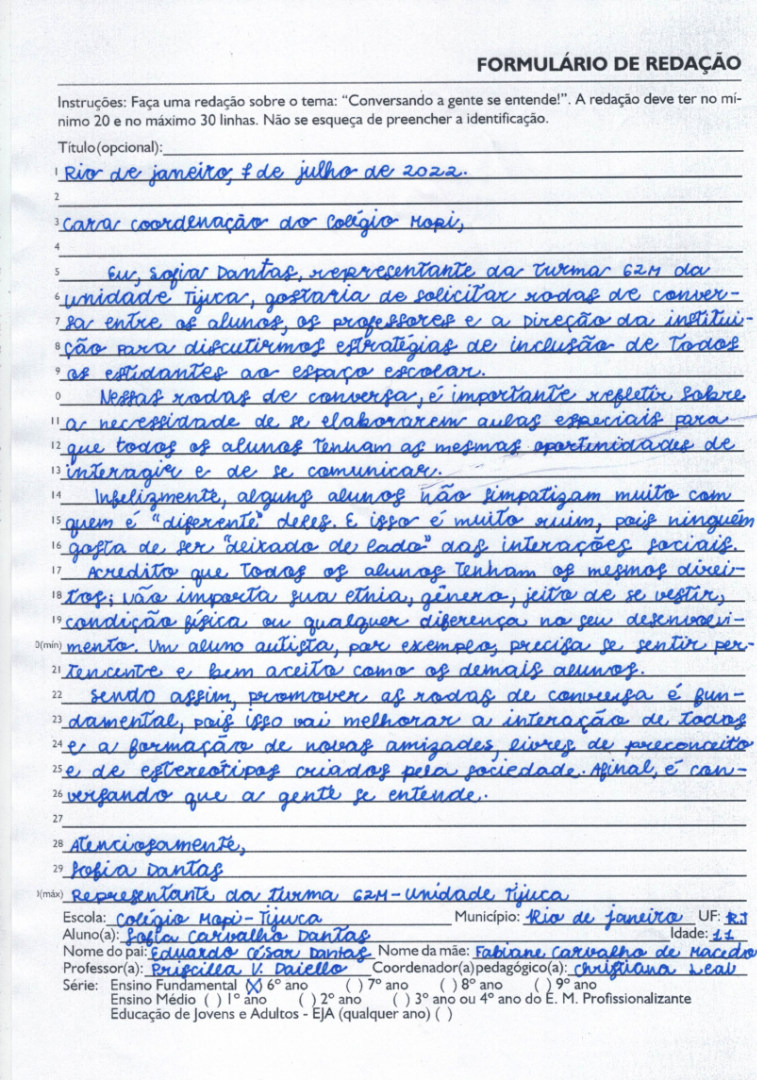 FORMULÁRIO DE REDAÇÃO
Instruções: Faça uma redação sobre o tema: "Conversando a gente se entende!". A redação deve ter no mí-
nimo 20 e no máximo 30 linhas. Não se esqueça de preencher a identificação.
Título (opcional):
1 Rio de janeiro, 7 de julho de 2022.
2
3 Cara coordenação do Colégio Mopi,
4
5 Eu, Sofia Dantas, representante da turma 62M da
6 unidade Tijuca, gostaria de solicitar rodas de conver-
7 sa entre os alunos, os professores e a Direção da institui-
8 ção para discutirmos estratégias de inclusão de todos
9 os estudantes ao espaço escolar.
0 Nessas rodas de conversa, é importante refletir sobre
11 a necessidade de se elaborarem aulas especiais para
12 que todos os alunos tenham as mesmas oportunidades de
13 interagir e de se comunicar.
14 Infelizmente, alguns alunos não simpatizam muito com
15 quem é "diferente" deles. E isso é muito ruim, pois ninguém
16 gosta de ser "deixado de lado" das interações sociais.
17 Acredito que todos os alunos tenham os mesmos direi-
18 tos; não importa sua etnia, gênero, jeito de se vestir,
19 condição física ou qualquer diferença no seu desenvolvi-
0(mín) mento. Um aluno autista, por exemplo, precisa se sentir per-
21 tencente e bem aceito como os demais alunos.
22 Sendo assim, promover as rodas de conversa é fun-
23 damental, pois isso vai melhorar a interação de todos
24 e a formação de novas amizades, livres de preconceito
25 e de estereótipos criados pela sociedade. Afinal, é con-
26 versando que a gente se entende.
27
28 Atenciosamente,
29 Sofia Dantas
(máx) Representante da turma 62M - Unidade Tijuca
Escola: Colégio Mopi - Tijuca Município: Rio de janeiro UF: RJ
Aluno(a): Sofia Carvalho Dantas Idade: 11
Nome do pai: Eduardo César Dantas Nome da mãe: Fabiane Carvalho de Macedo
Professor(a): Priscilla V. Daiello Coordenador(a) pedagógico(a): Christiana Leal
Série: Ensino Fundamental (X) 6º ano ( ) 7º ano ( ) 8º ano ( ) 9º ano
Ensino Médio ( ) 1º ano ( ) 2º ano ( ) 3º ano ou 4º ano do E. M. Profissionalizante
Educação de Jovens e Adultos - EJA (qualquer ano) ( )